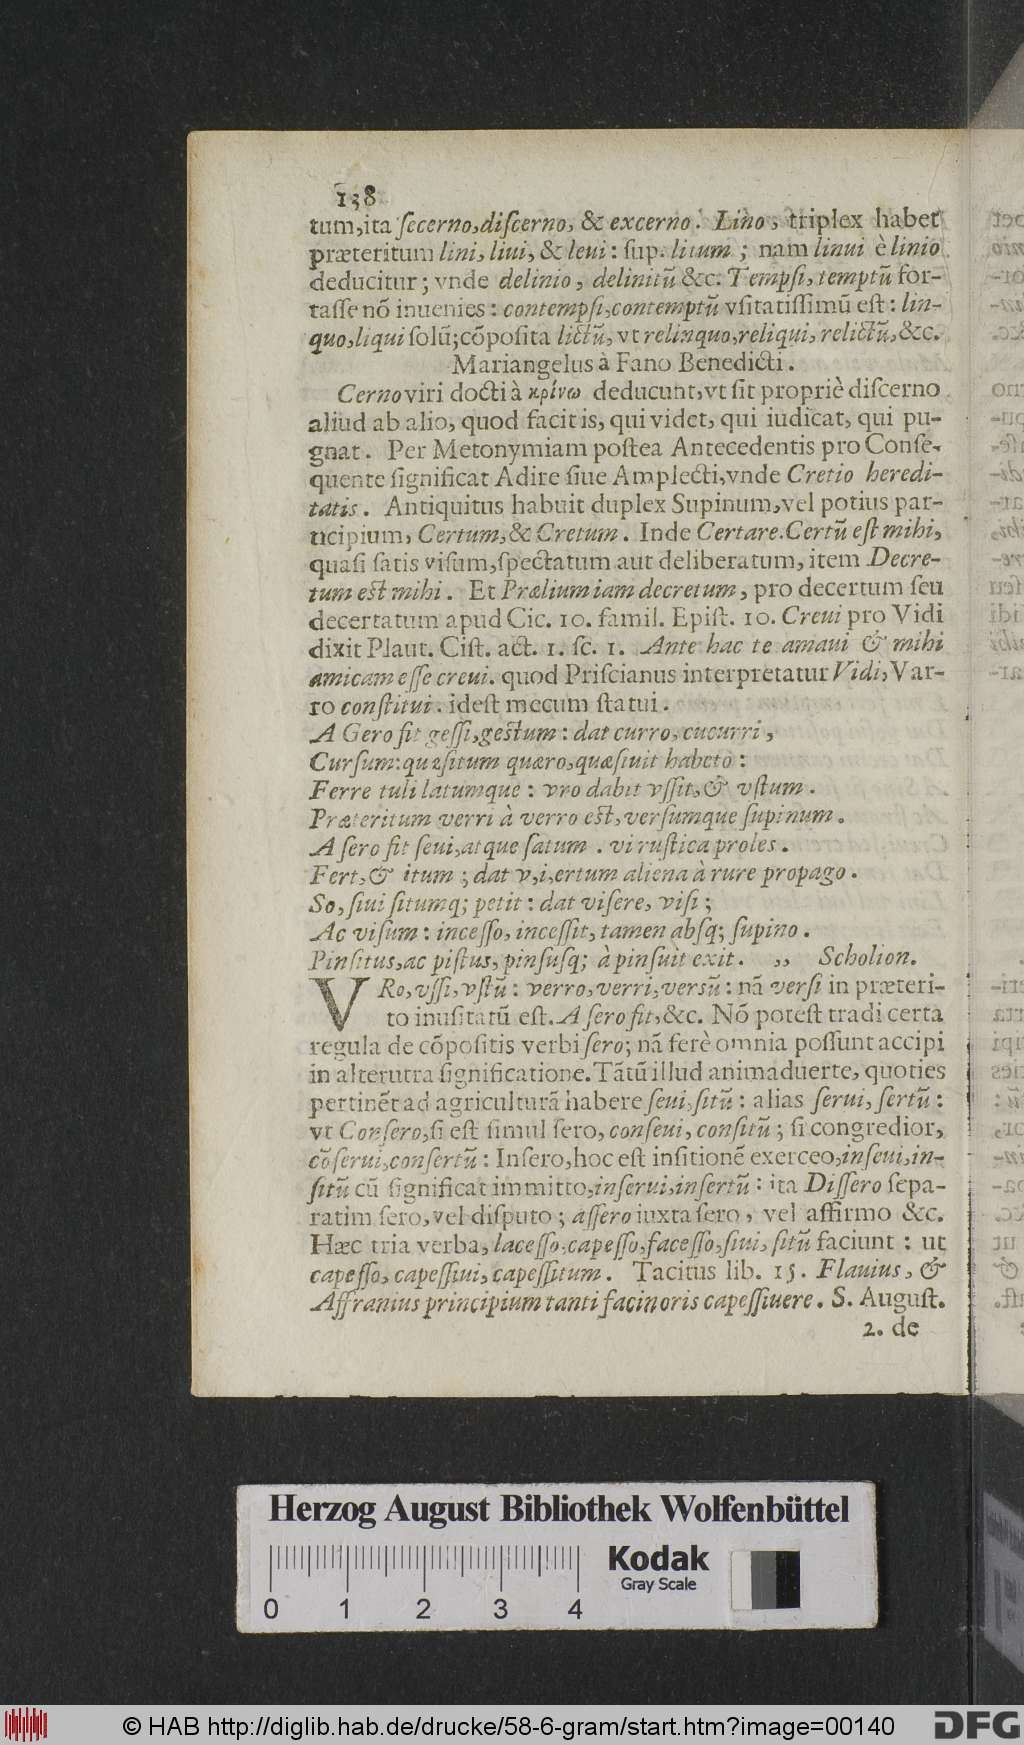 138
tum,ita ſecerno,diſcerno, & excerno. Lino, triplex habet
præteritum lini, liui, & leui: ſup. litum; nam linui è linio
deducitur; vnde delinio, delinitũ &c. Tempſi, temptũ for-
taſſe nõ inuenies: contempſi,contemptũ vſitatiſſimũ eſt: lin-
quo,liqui ſolũ;cõpoſita lictũ, vt relinquo,reliqui, relictũ,&c.
Mariangelus à Fano Benedicti.
Cerno viri docti à κρίνω deducunt,vt ſit propriè diſcerno
aliud ab alio, quod facit is, qui videt, qui iudicat, qui pu-
gnat. Per Metonymiam poſtea Antecedentis pro Conſe-
quente ſignificat Adire ſiue Amplecti,vnde Cretio heredi-
tatis. Antiquitus habuit duplex Supinum,vel potius par-
ticipium, Certum,& Cretum. Inde Certare.Certũ eſt mihi,
quaſi ſatis viſum,ſpectatum aut deliberatum, item Decre-
tum eſt mihi. Et Prælium iam decretum, pro decertum ſeu
decertatum apud Cic. 10. famil. Epiſt. 10. Creui pro Vidi
dixit Plaut. Ciſt. act. 1. ſc. 1. Ante hac te amaui & mihi
amicam eſſe creui. quod Priſcianus interpretatur Vidi, Var-
ro conſtitui. ideſt mecum ſtatui.
A Gero fit geſſi,geſtum: dat curro, cucurri,
Curſum: quæſitum quæro,quæſiuit habeto:
Ferre tuli latumque: vro dabit vſſit,& vſtum.
Præteritum verri à verro eſt,verſumque ſupinum.
A ſero fit ſeui,atque ſatum. vi ruſtica proles.
Fert,& itum; dat v,i,ertum aliena à rure propago.
So, ſiui ſitumq; petit: dat viſere, viſi;
Ac viſum: inceſſo, inceſſit, tamen abſq; ſupino.
Pinſitus,ac piſtus,pinſuſq; à pinſuit exit. ,, Scholion.
VRo,vſſi,vſtũ: verro,verri,verſũ: nã verſi in præteri-
to inuſitatũ eſt.A ſero fit,&c. Nõ poteſt tradi certa
regula de cõpoſitis verbi ſero; nã ferè omnia poſſunt accipi
in alterutra ſignificatione.Tãtũ illud animaduerte, quoties
pertinẽt ad agriculturã habere ſeui,ſitũ: alias ſerui, ſertũ:
vt Conſero,ſi eſt ſimul ſero, conſeui, conſitũ; ſi congredior,
cõſerui,conſertũ: Inſero,hoc eſt inſitionẽ exerceo,inſeui,in-
ſitũ cũ ſignificat immitto,inſerui,inſertũ: ita Diſſero ſepa-
ratim ſero,vel diſputo; aſſero iuxta ſero, vel affirmo &c.
Hæc tria verba, laceſſo,capeſſo,faceſſo,ſiui, ſitũ faciunt: ut
capeſſo, capeſſiui, capeſſitum. Tacitus lib. 15. Flauius, &
Affranius principium tanti facinoris capeſſiuere. S. Auguſt.
2. de
Herzog August Bibliothek Wolfenbüttel
Kodak
Gray Scale
0 1 2 3 4
© HAB http://diglib.hab.de/drucke/58-6-gram/start.htm?image=00140
DFG